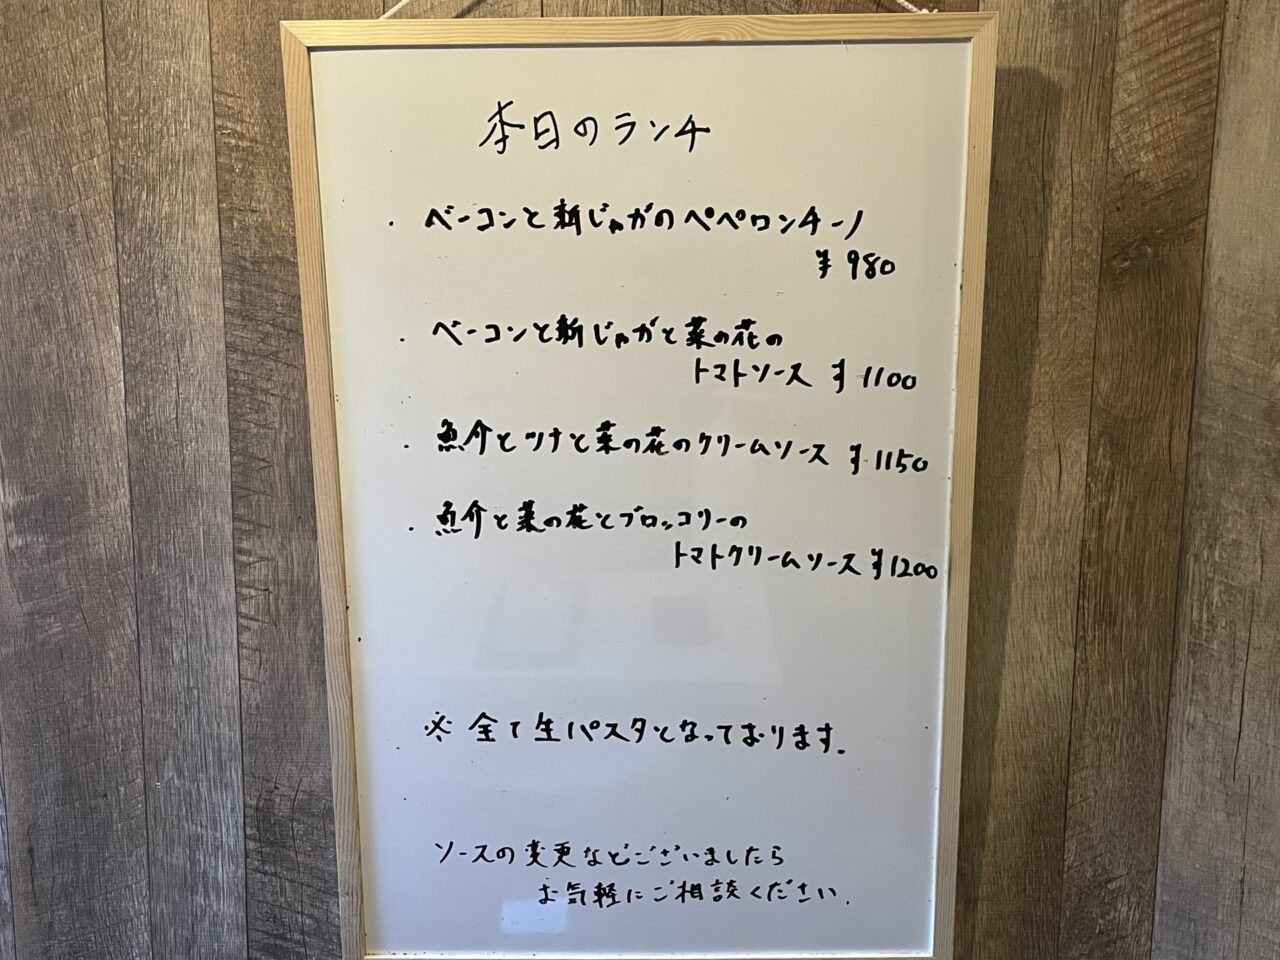 本日のランチ
・ベーコンと新じゃがのペペロンチーノ
¥980
・ベーコンと新じゃがと菜の花の
トマトソース ¥1100
・魚介とツナと菜の花のクリームソース ¥1150
・魚介と菜の花とブロッコリーの
トマトクリームソース ¥1200
※全て生パスタとなっております。
ソースの変更などございましたら
お気軽にご相談ください。